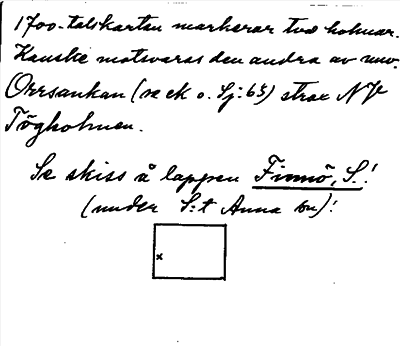 1700-talskartan markerar två holmar.
Kanske motsvaras den andra av nuv.
Orrsankan (se ek o. Sj: 65) strax NV
Tögholmen.
Se skiss å lappen Finnö, S.!
(under S:t Anna sn)!
x